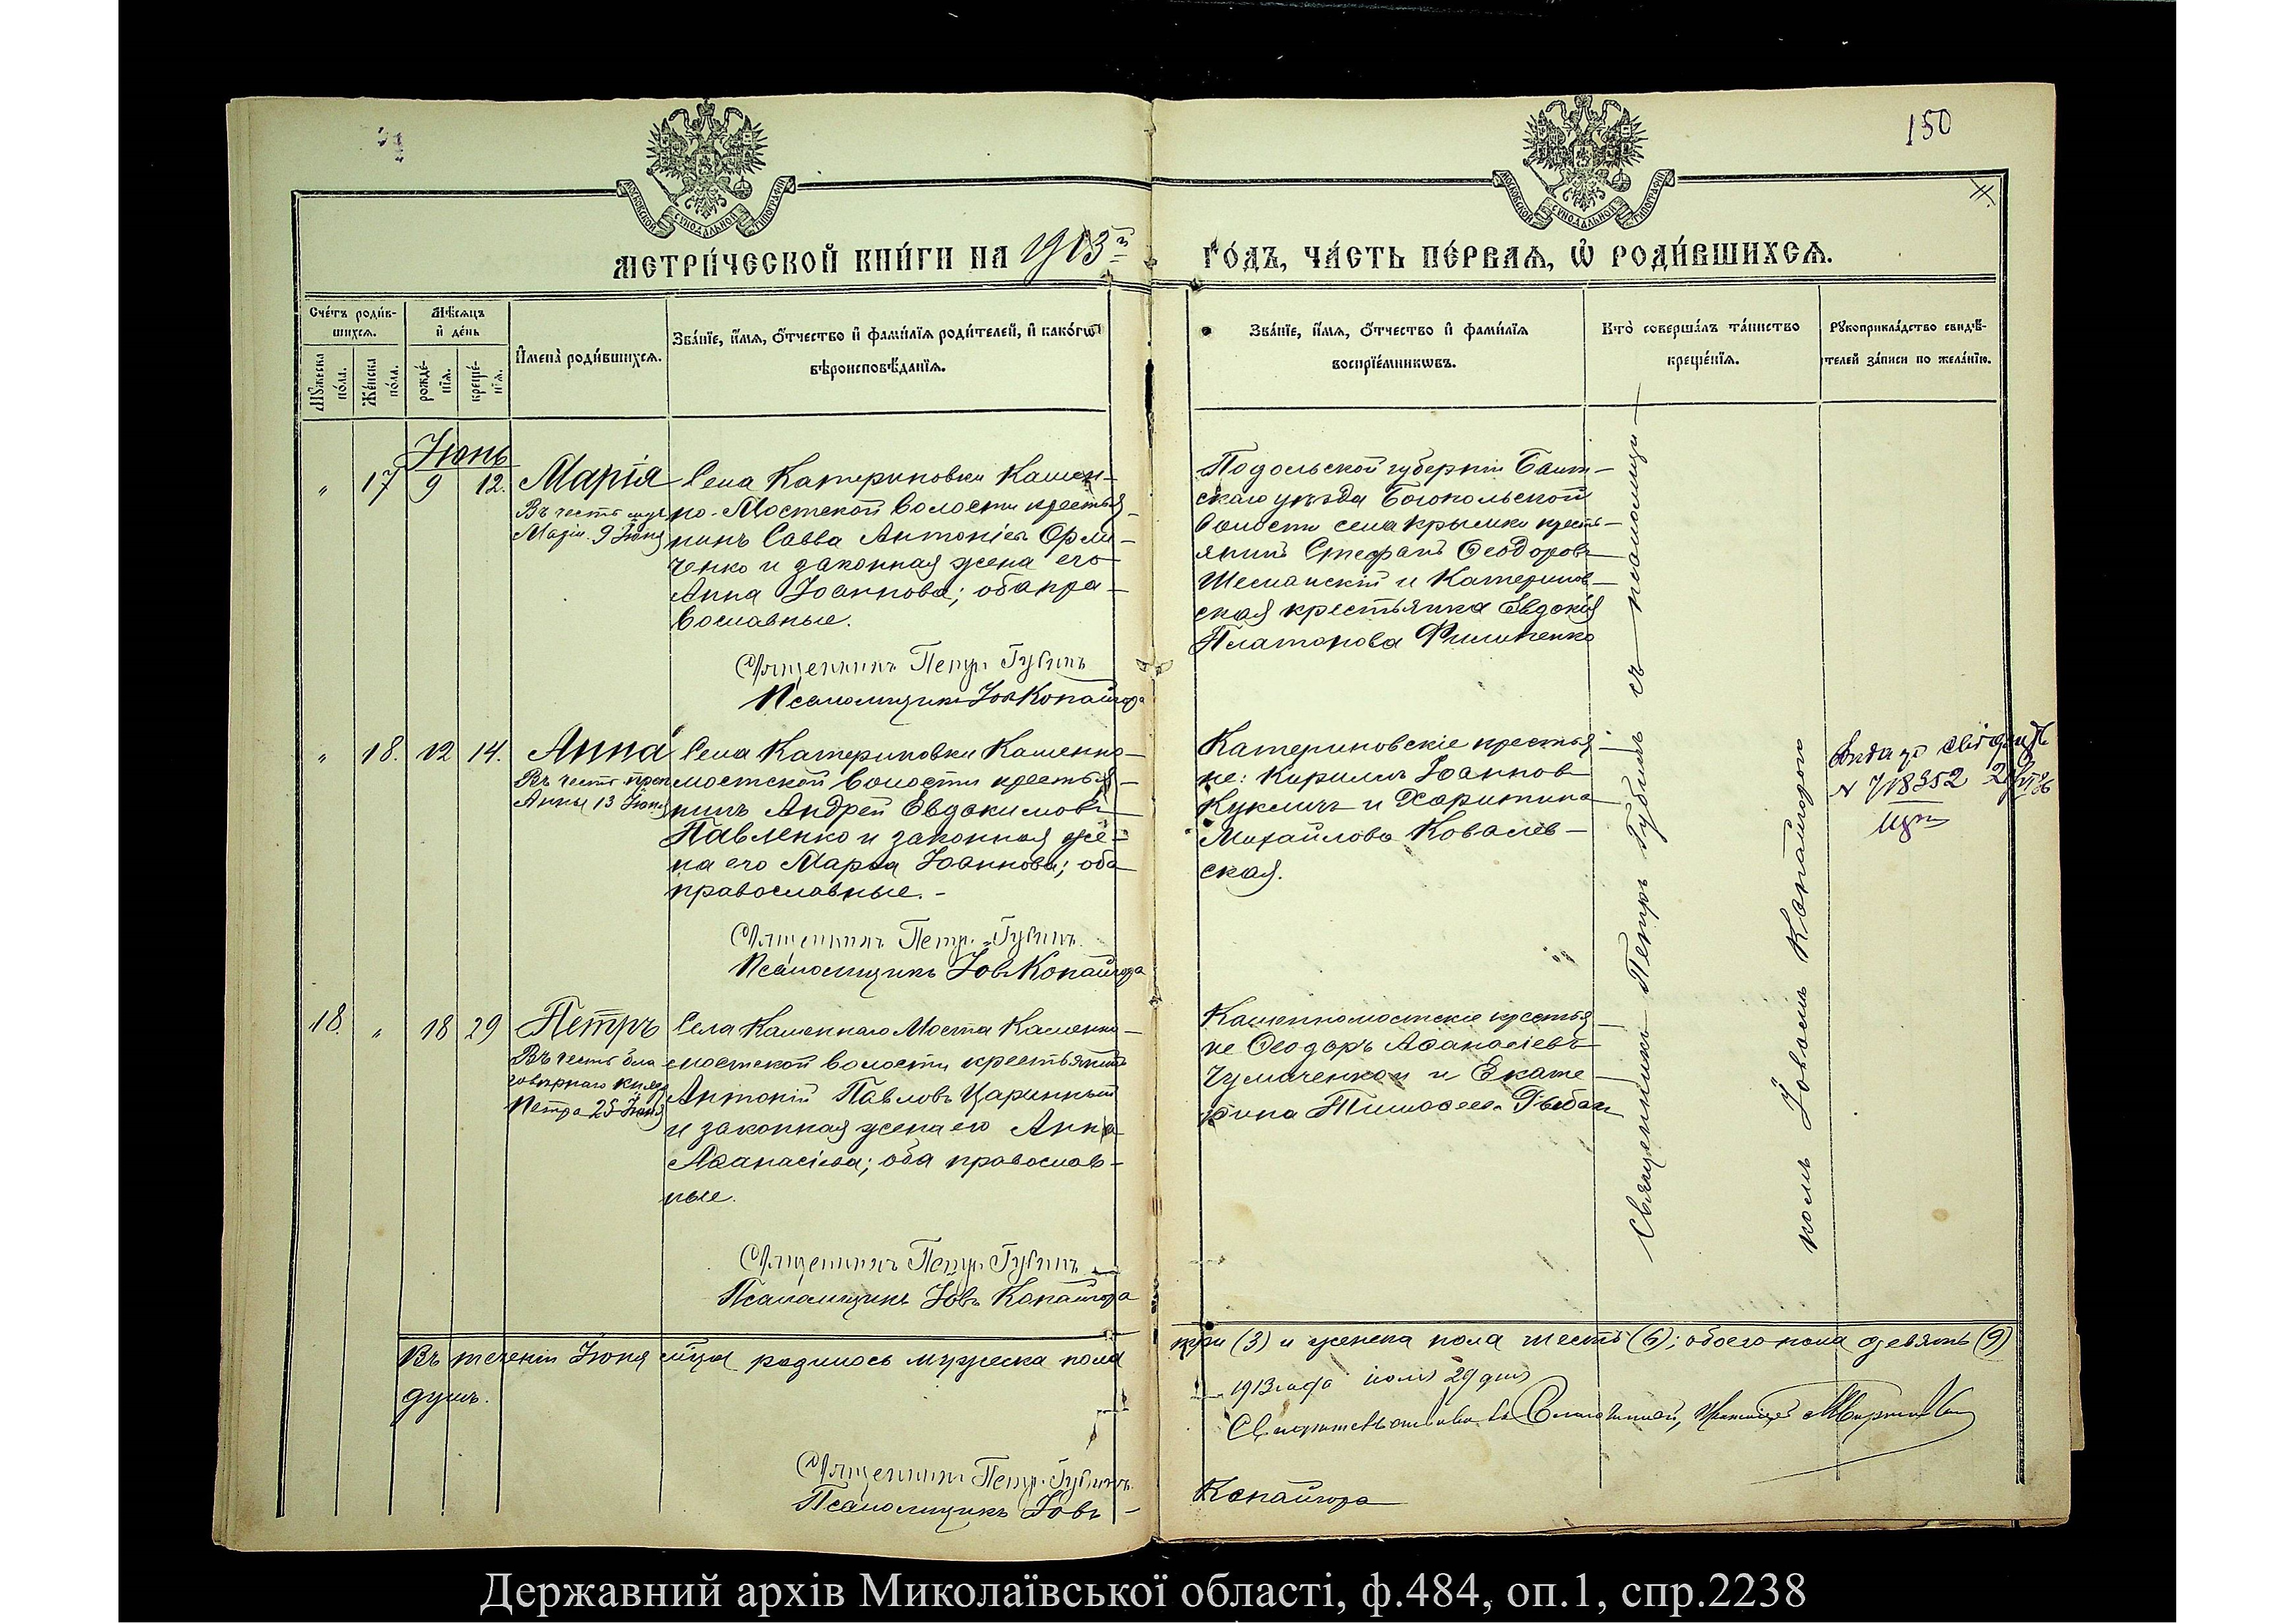 150
МОСКОВСКОЙ СѴНОДАЛЬНОЙ ТИПОГРАФІИ
МОСКОВСКОЙ СѴНОДАЛЬНОЙ ТИПОГРАФІИ
МЕТРИ́ЧЕСКОЙ КНИ́ГИ НА 1913й ГО́ДЪ, ЧА́СТЬ ПЕ́РВАѦ, Ѡ҆ РОДИ́ВШИХСѦ.
Сче́тъ роди́в-
шихсѧ.
Мꙋ́жеска
по́ла.
Же́нска
по́ла.
Мѣ́сѧцъ
и҆ де́нь
рожде́-
нїѧ.
креще́-
нїѧ.
И҆мена̀ роди́вшихсѧ.
Зва́нїе, и҆́мѧ, ѻ҆́тчество и҆ фами́лїѧ роди́телей, и҆ како́гѡ
вѣроисповѣ́данїѧ.
Зва́нїе, и҆́мѧ, ѻ҆́тчество и҆ фами́лїѧ
воспрїе́мникѡвъ.
Кто̀ соверша́лъ та́инство
креще́нїѧ.
Рꙋкоприкла́дство свидѣ́-
телей за́писи по жела́нїю.
Іюнь
„ 17 9 12. Марія
Въ честь муч
Маріи 9 Іюня
Села Катериновки Камен-
но-Мостской волости крестья-
нинъ Савва Антоніевъ Орли-
ченко и законная жена его
Анна Іоаннова; оба пра-
вославные.
Священникъ Петръ Губинъ
Псаломщикъ Іовъ Копайгора
Подольской губерніи Балт-
скаго уѣзда Богопольской
волости села Крымки кресть-
янинъ Стефанъ Ѳеодоровъ
и Катеринов-
ская крестьянка Евдокія
Платонова Филипенко
„ 18. 12 14. Анна
Въ честь преп
Анны 13 Іюня
Села Катериновки Каменно-
мостской волости крестья-
нинъ Андрей Евдокимовъ
Павленко и законная же-
на его Марѳа Іоаннова; оба
православные.-
Священникъ Петръ Губинъ
Псаломщикъ Іовъ Копайгора
Катериновскіе крестья-
не: Кириллъ Іоанновъ
Кукличъ и Харитина
Михайлова Ковалев-
ская.
N 718352
18. „ 18 29 Петръ
Въ честь бла
говѣрнаго князя
Петра 25 Іюня
Села Каменнаго Моста Каменно-
мостской волости крестьянинъ
Антоній Павловъ Царинный
и законная жена его Анна
Аѳанасіева; оба православ-
ные.
Священникъ Петръ Губинъ
Псаломщикъ Іовъ Копайгора
Каменномостскіе крестья-
не Ѳеодоръ Аѳанасіевъ
и Екате-
рина Тимоѳеева Рыбак
Священникъ Петръ Губинъ съ псаломщи-
комъ Іовомъ Копайгорого
Въ теченіи Іюня мѣсяца родилось мужеска пола три (3) и женска пола шесть (6); обоего пола девять (9)
душъ.
1913 года іюля 29 дня
Священникъ Петръ Губинъ
Псаломщикъ Іовъ - Копайгора
Державний архів Миколаївської області, ф.484, оп.1, спр.2238